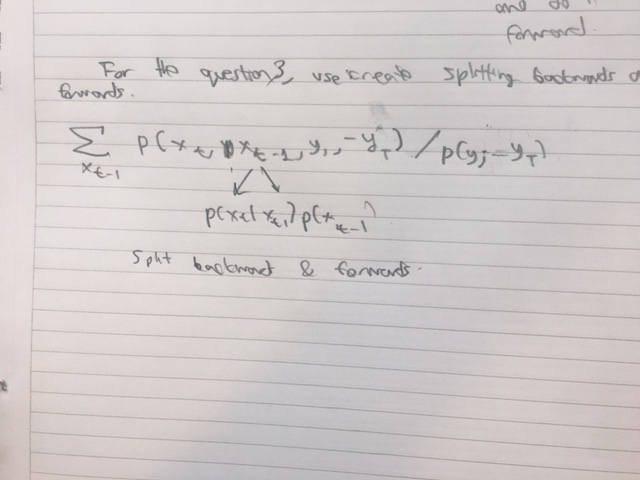 and do
forward.
For the question 3, use create splitting backwards
forwards.
∑ p(x_t, x_{t-1}, y_1, -y_T) / p(y_1-y_T)
x_{t-1}
p(x_t|x_{t-1})p(x_{t-1})
Split backward & forwards.